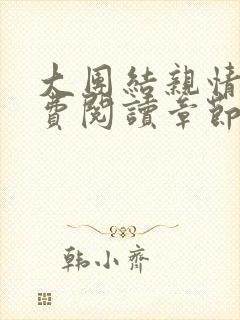 大團結親情
費閱讀章節
韩小齐